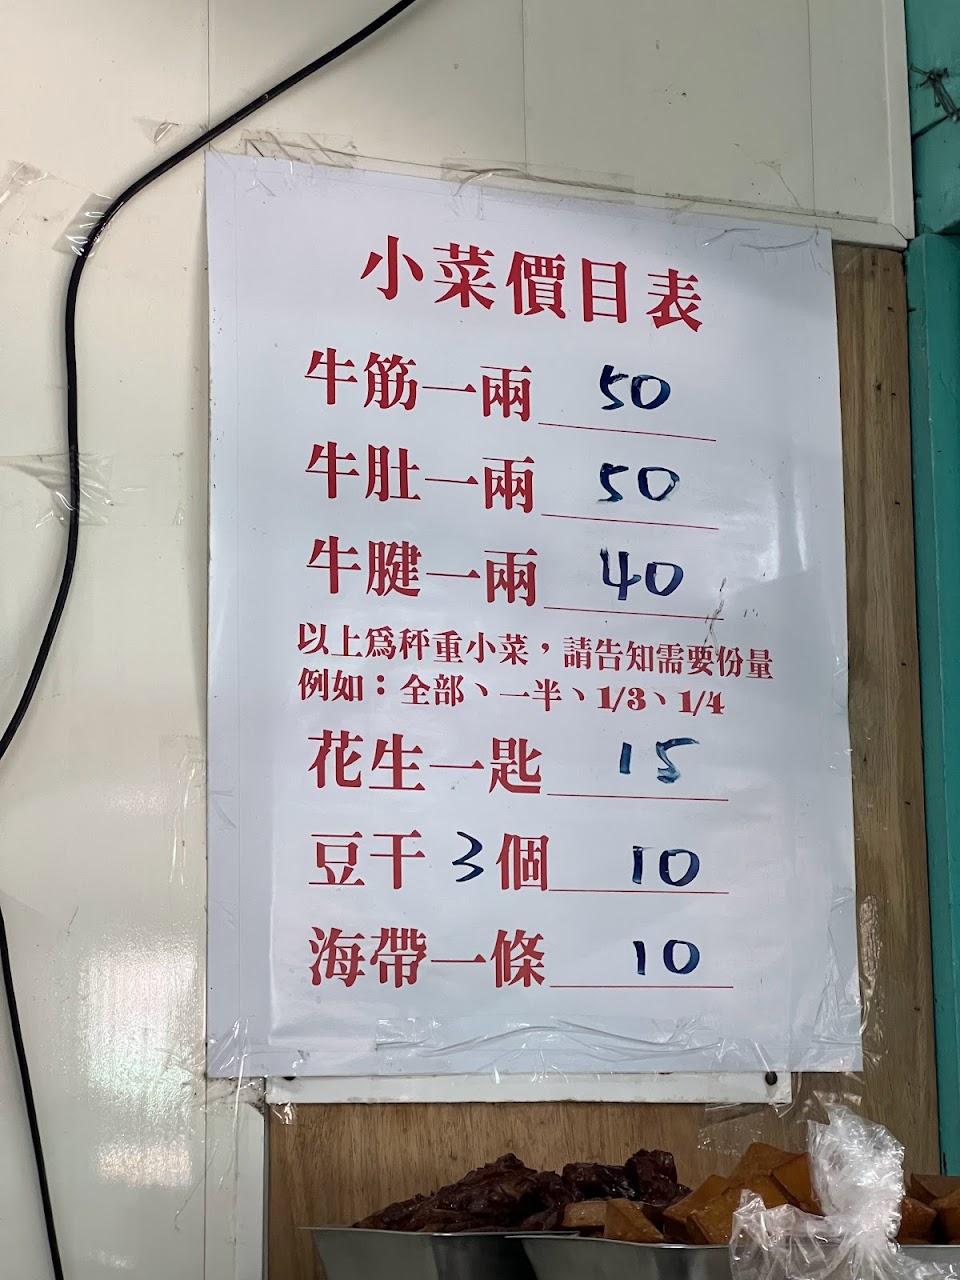 小菜價目表
牛筋一兩 50
牛肚一兩 50
牛腱一兩 40
以上為秤重小菜，請告知需要份量
例如：全部、一半、1/3、1/4
花生一匙 15
豆干 3 個 10
海帶一條 10